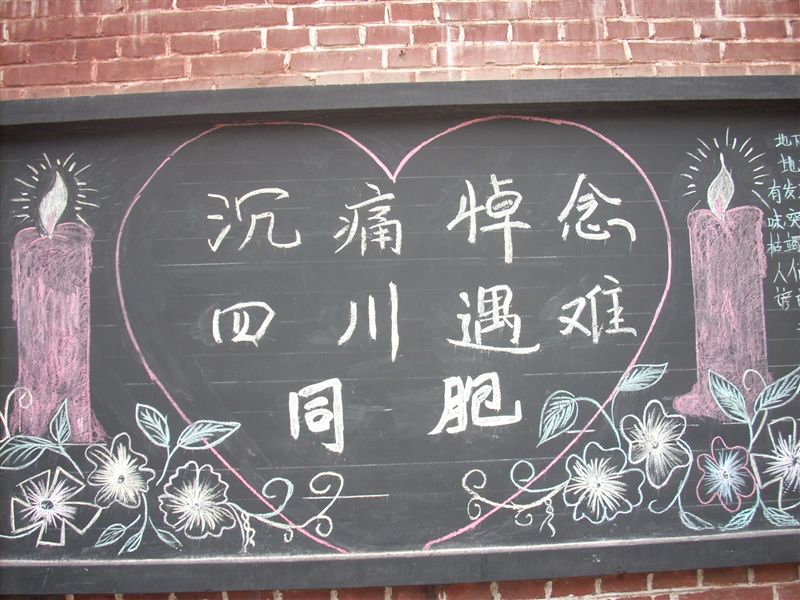 沉痛悼念
四川遇难
同胞
地下
地
有发
味突
枯
人们